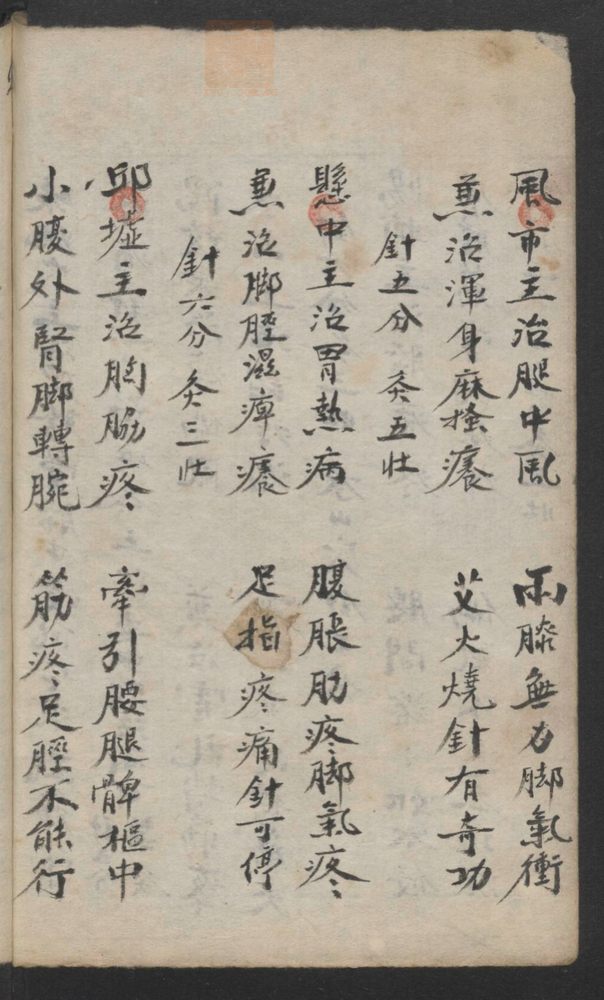 風市主治腿中風　兩膝無力脚氣衝
兼治渾身麻搔癢　艾火燒針有奇功
針五分　灸五壯
懸中主治胃熱病　腹脹肋疼脚氣疼
兼治脚脛濕痺癢　足指疼痛針可停
針六分　灸三壯
邱墟主治胸脇疼　牽引腰腿髀樞中
小腹外腎脚轉腕　筋疼足脛不能行